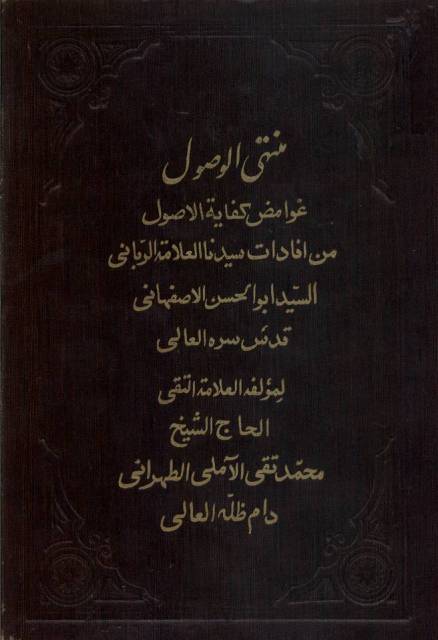 منتهى الوصول
غوامض كفاية الاصول
من افادات سيدنا العلامة الربانى
السيد ابو الحسن الاصفهانى
قدس سره العالى
لمؤلفه العلامة التقى
الحاج الشيخ
محمد تقى الآملى الطهرانى
دام ظله العالى